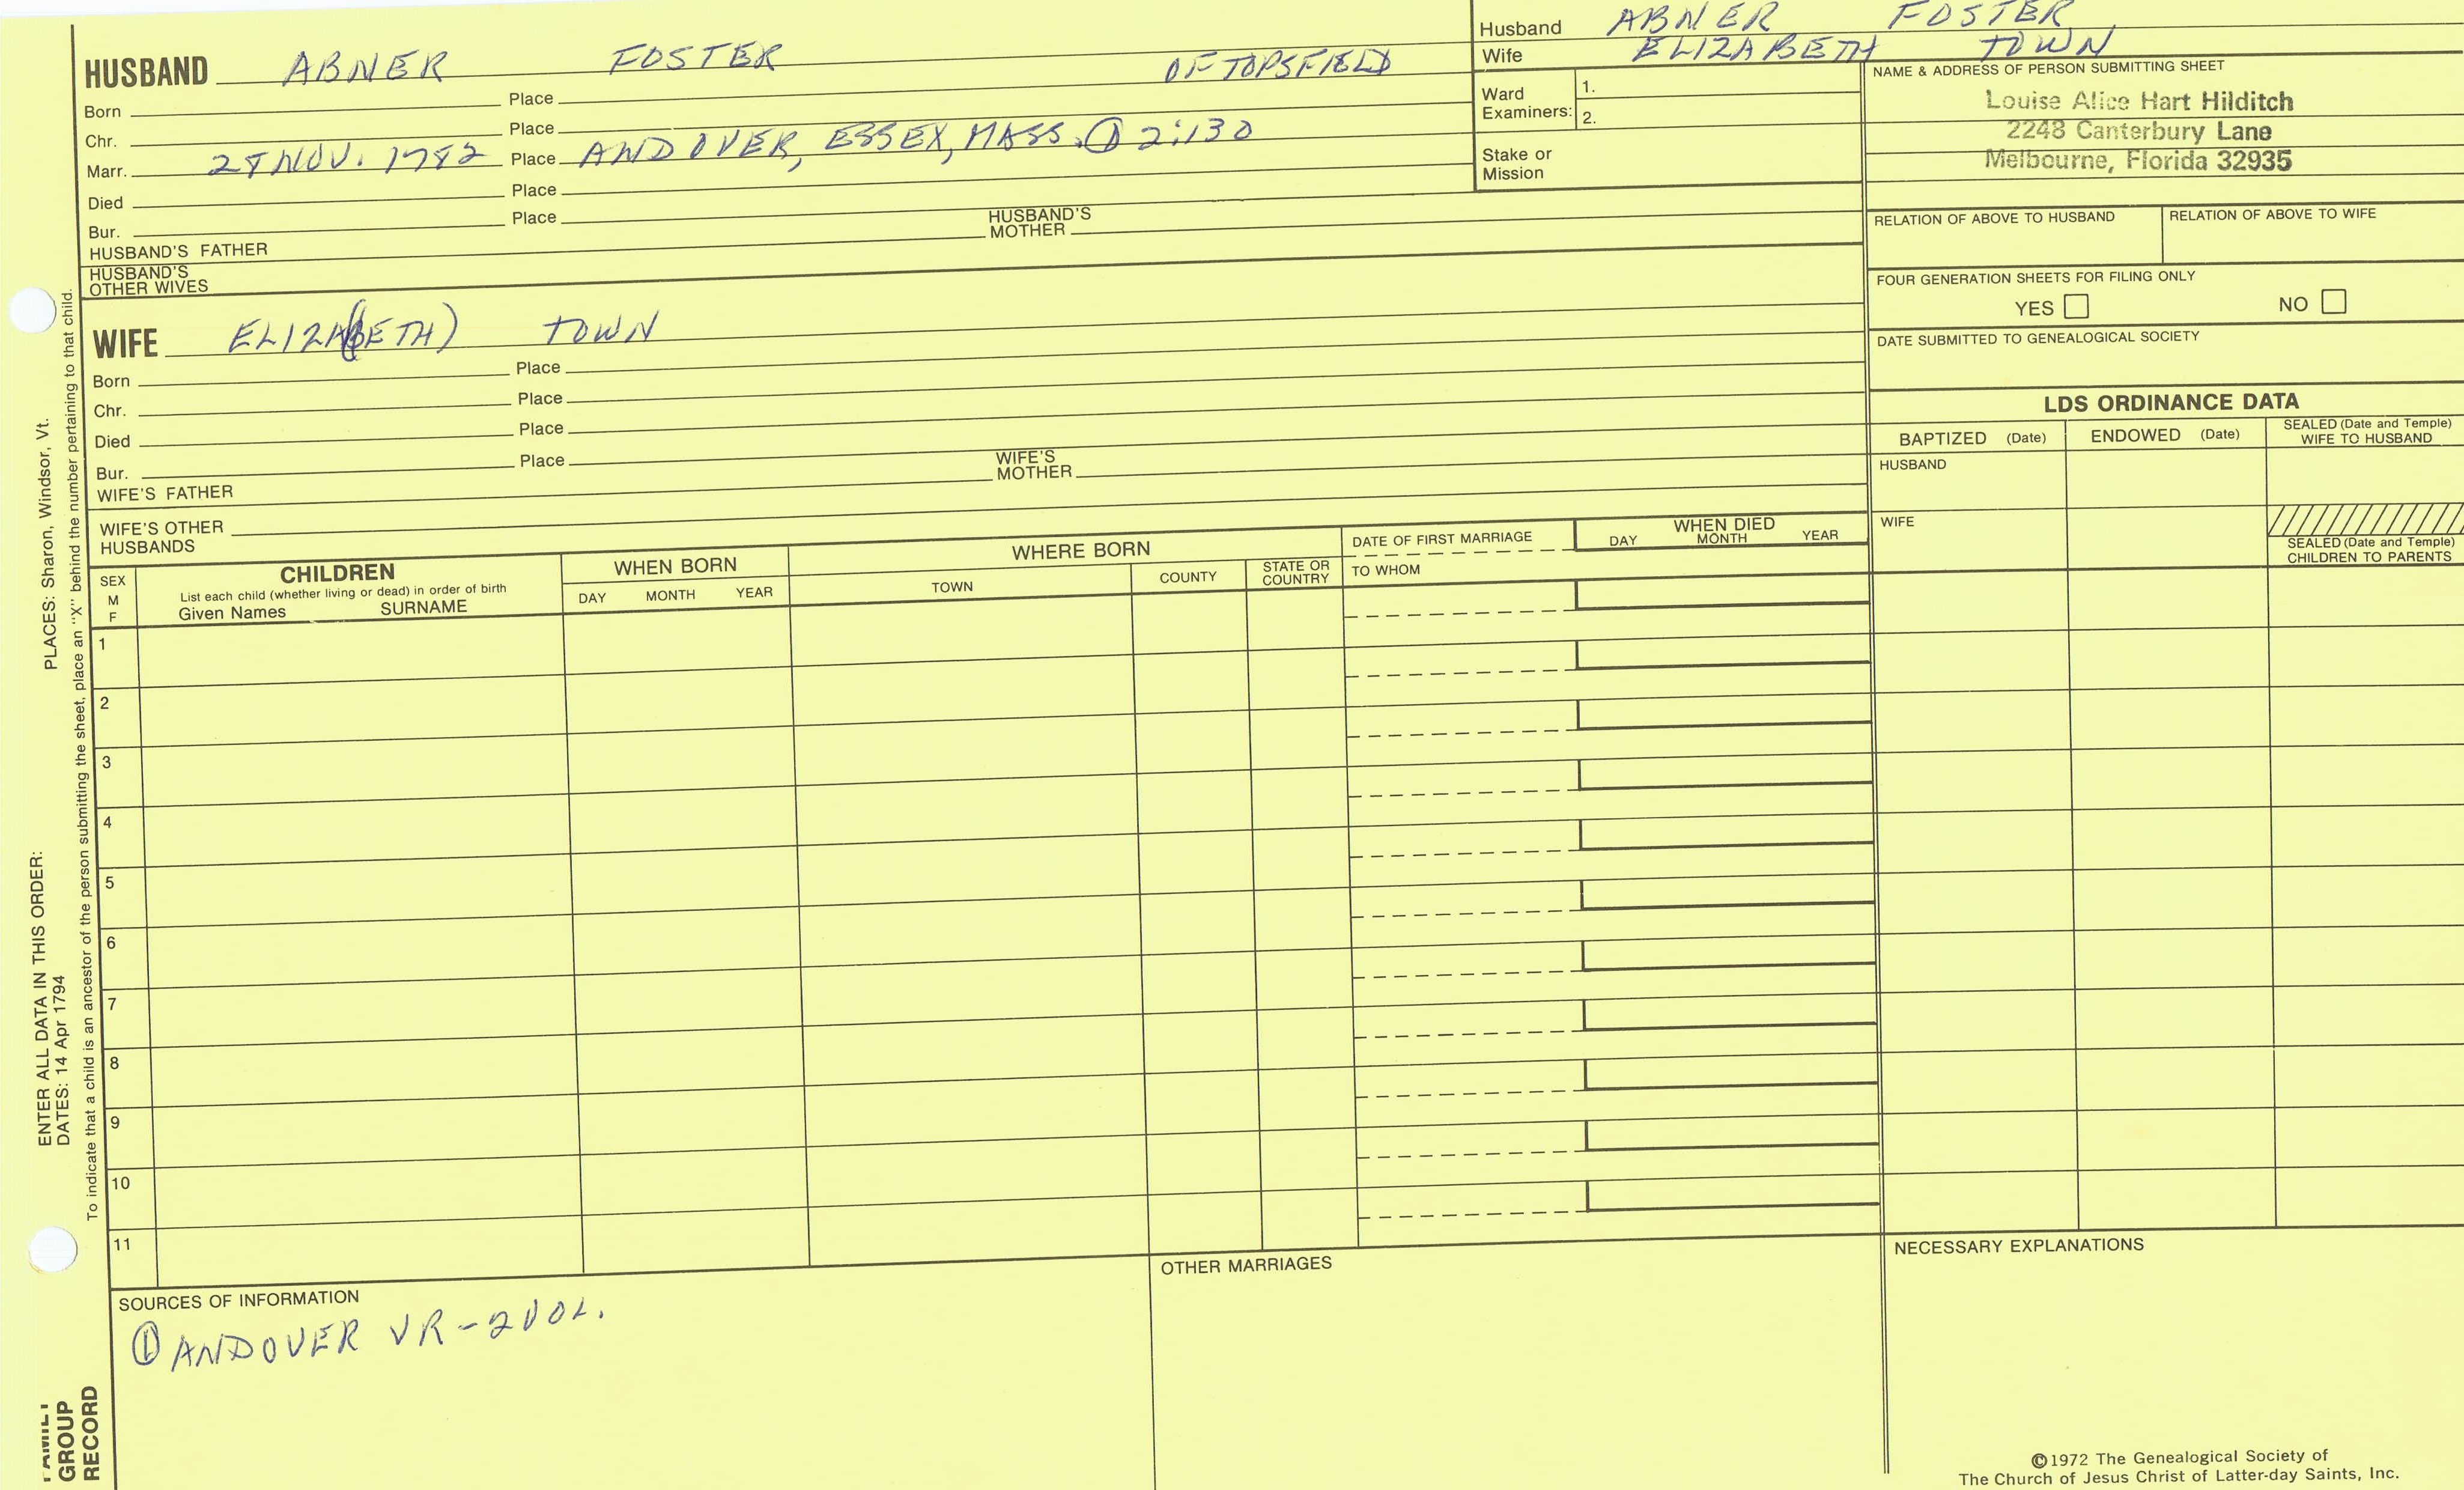 HUSBAND ABNER FOSTER OF TOPSFIELD
Born Place
Chr. Place
Marr. 28 NOV. 1782 Place ANDOVER, ESSEX, MASS. ① 2:130
Died Place
Bur. Place
HUSBAND'S FATHER HUSBAND'S MOTHER
HUSBAND'S OTHER WIVES
Husband ABNER FOSTER
Wife ELIZABETH TOWN
Ward Examiners: 1.
2.
Stake or Mission
NAME & ADDRESS OF PERSON SUBMITTING SHEET
Louise Alice Hart Hilditch
2248 Canterbury Lane
Melbourne, Florida 32935
RELATION OF ABOVE TO HUSBAND RELATION OF ABOVE TO WIFE
FOUR GENERATION SHEETS FOR FILING ONLY
YES NO
DATE SUBMITTED TO GENEALOGICAL SOCIETY
WIFE ELIZA(BETH) TOWN
Born Place
Chr. Place
Died Place
Bur. Place
WIFE'S FATHER WIFE'S MOTHER
WIFE'S OTHER HUSBANDS
LDS ORDINANCE DATA
BAPTIZED (Date) ENDOWED (Date) SEALED (Date and Temple) WIFE TO HUSBAND
HUSBAND
WIFE
SEALED (Date and Temple)
CHILDREN TO PARENTS
SEX M F
CHILDREN
List each child (whether living or dead) in order of birth
Given Names SURNAME
WHEN BORN
DAY MONTH YEAR
WHERE BORN
TOWN COUNTY STATE OR COUNTRY
DATE OF FIRST MARRIAGE
TO WHOM
WHEN DIED
DAY MONTH YEAR
1
2
3
4
5
6
7
8
9
10
11
SOURCES OF INFORMATION
① ANDOVER VR - 2 VOL.
OTHER MARRIAGES
NECESSARY EXPLANATIONS
©1972 The Genealogical Society of
The Church of Jesus Christ of Latter-day Saints, Inc.
ENTER ALL DATA IN THIS ORDER:
DATES: 14 Apr 1794 PLACES: Sharon, Windsor, Vt.
To indicate that a child is an ancestor of the person submitting the sheet, place an "X" behind the number pertaining to that child.
FAMILY
GROUP
RECORD